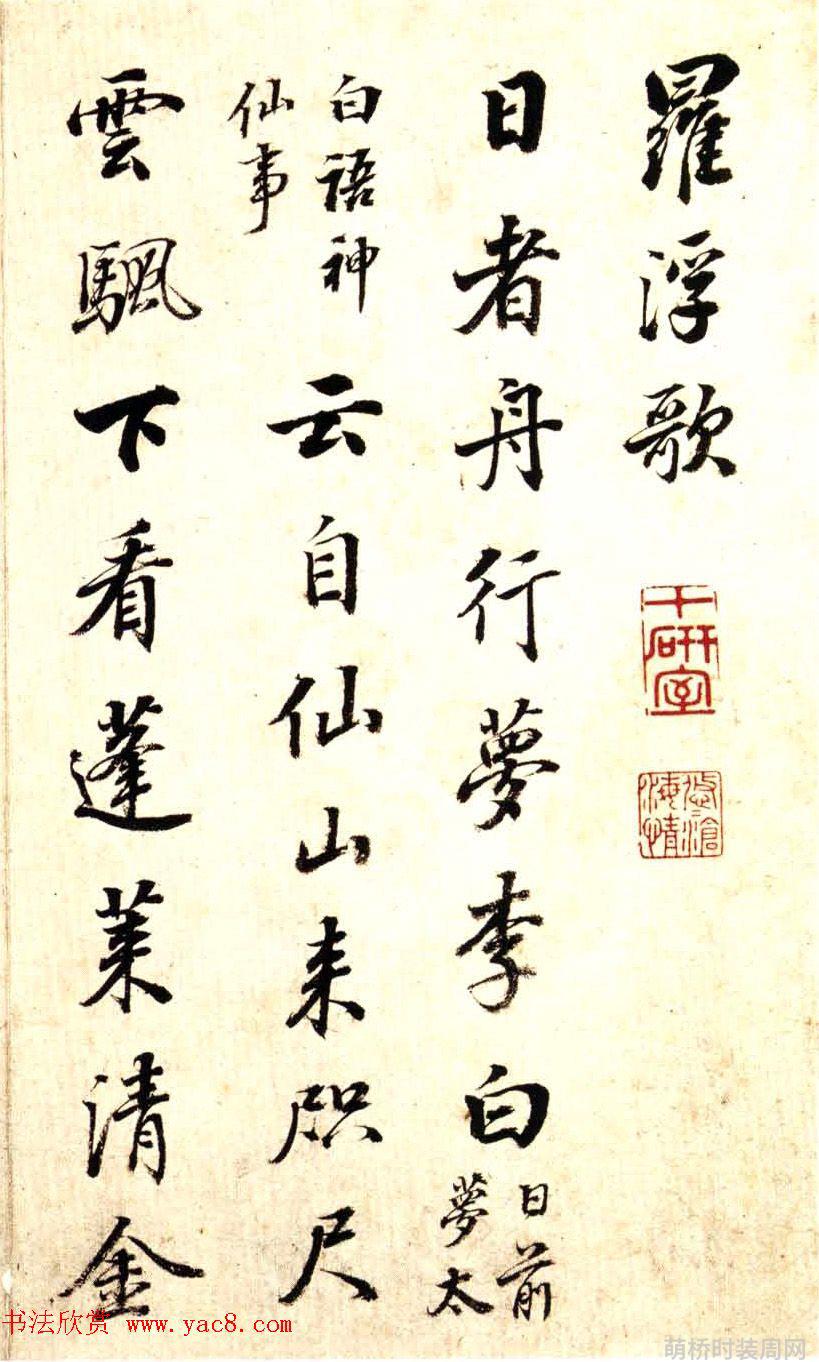 羅浮歌
研室
日者舟行夢李白
日前
夢太
白語神
仙事
云自仙山来咫尺
雲颿下看蓬莱清金
书法欣赏 www.yac8.com
萌桥时装周网